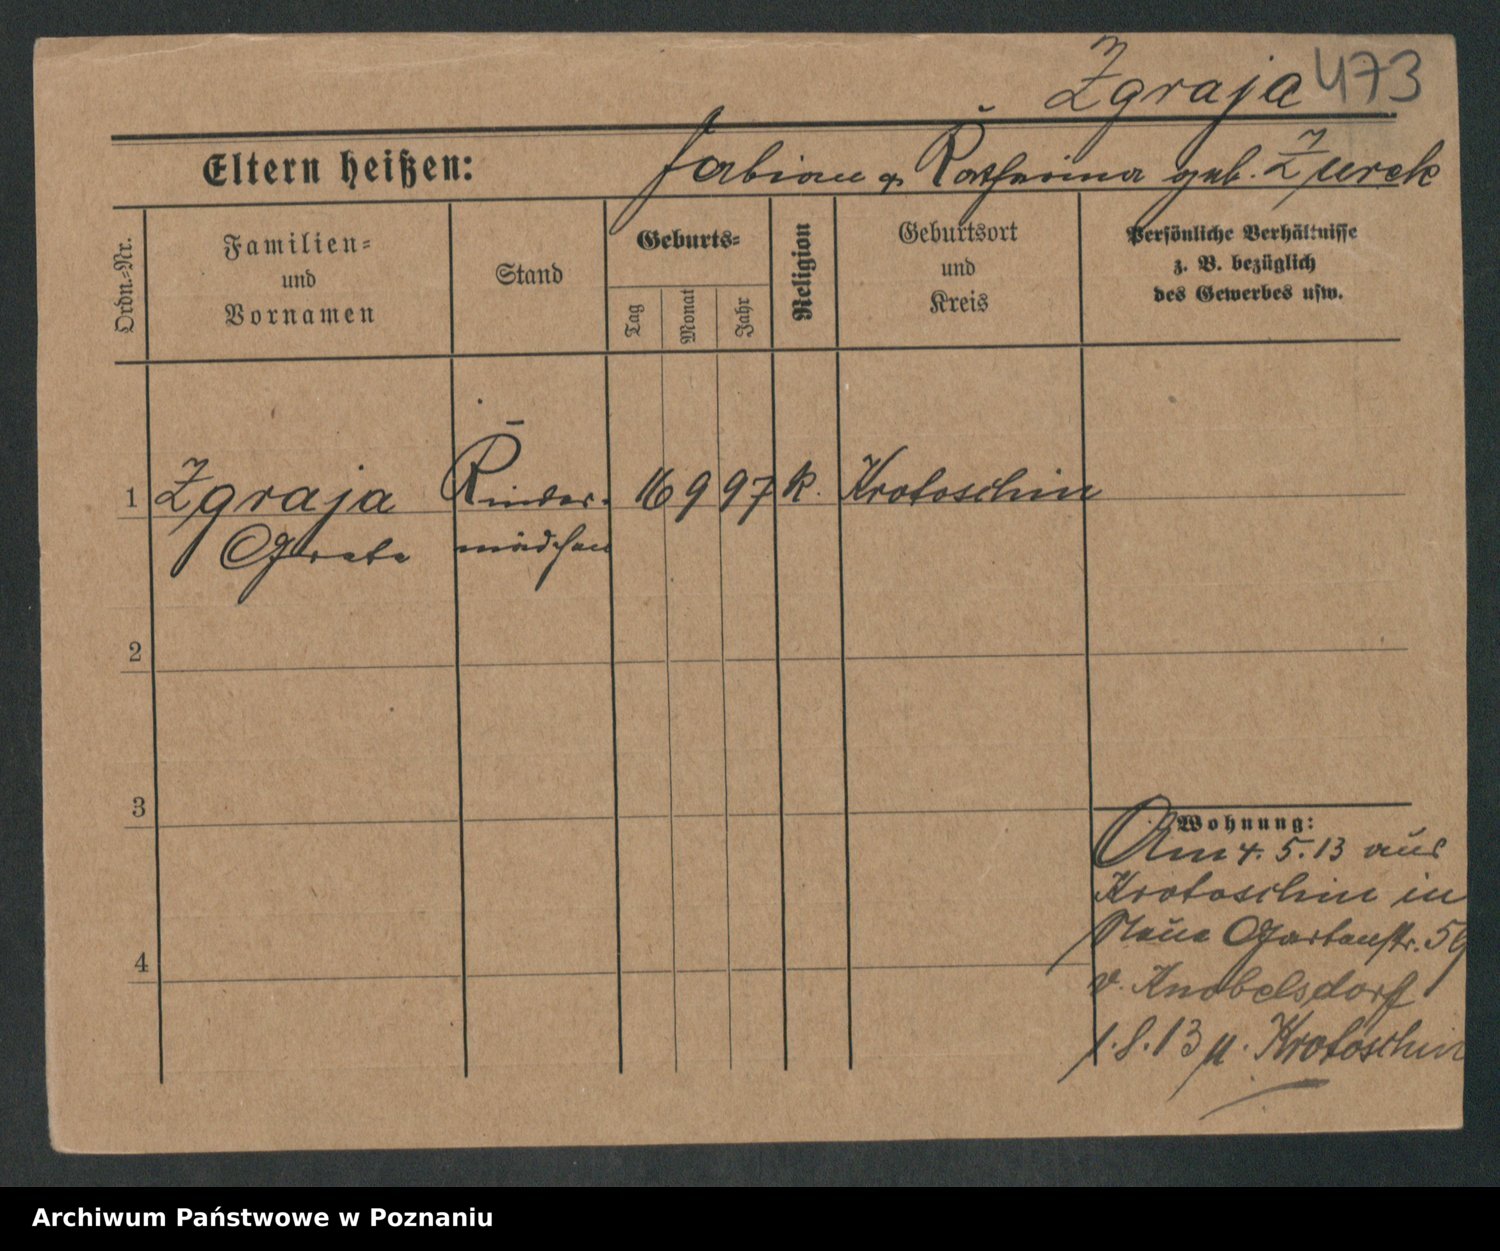 Zgraja 473
Eltern heißen: Fabian u Katharina geb. Zurek
Ordn.-Nr.
Familien-
und
Vornamen
Stand
Geburts-
Tag
Monat
Jahr
Religion
Geburtsort
und
Kreis
Persönliche Verhältnisse
z. B. bezüglich
des Gewerbes usw.
1 Zgraja Kinder- 16 9 97 k. Krotoschin
Grete mädchen
2
3
4
Wohnung:
Am 4. 5. 13 aus
Krotoschin in
Neue Gartenstr. 59
v. Knobelsdorf
1. 8. 13 n. Krotoschin
Archiwum Państwowe w Poznaniu